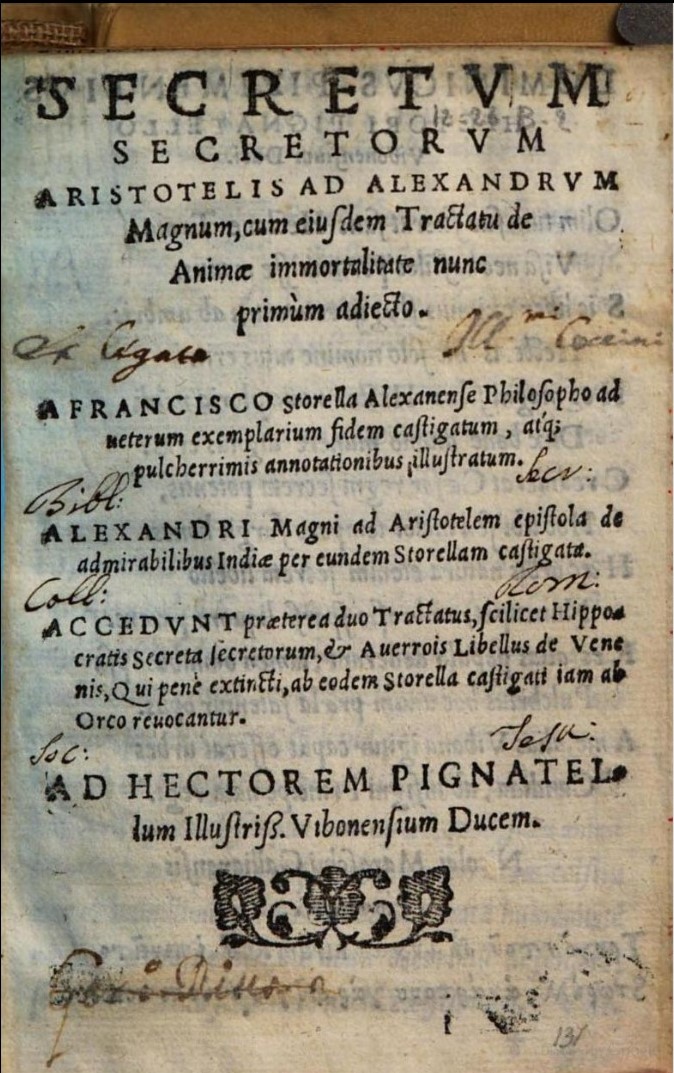 SECRETVM
SECRETORVM
ARISTOTELIS AD ALEXANDRVM
Magnum, cum eiuſdem Tractatu de
Animæ immortalitate nunc
primùm adiecto.
AFRANCISCO Storella Alexanenſe Philoſopho ad
ueterum exemplarium fidem caſtigatum, atq;
pulcherrimis annotationibus illuſtratum.
Secr:
Bibl:
ALEXANDRI Magni ad Ariſtotelem epiſtola de
admirabilibus Indiæ per eundem Storellam caſtigata.
Coll: Rom:
ACCEDVNT præterea duo Tractatus, ſcilicet Hippo-
cratis Secreta ſecretorum, & Auerrois Libellus de Vene
nis, Qui penè extincti, ab eodem Storella caſtigati iam ab
Orco reuocantur.
Soc: Jesu:
AD HECTOREM PIGNATEL-
lum Illuſtriß. Vibonenſium Ducem.
131